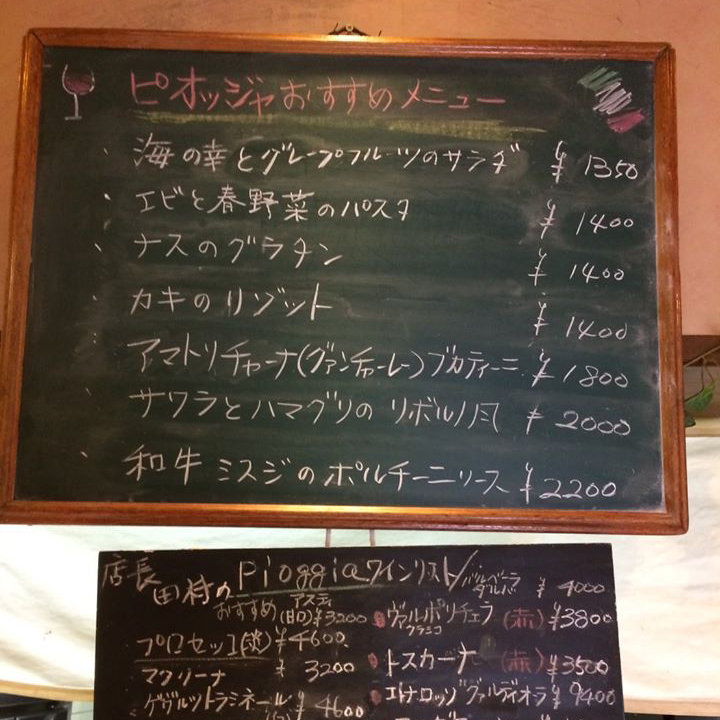 ピオッジャおすすめメニュー
・海の幸とグレープフルーツのサラダ ¥1350
・エビと春野菜のパスタ ¥1400
・ナスのグラタン ¥1400
・カキのリゾット ¥1400
アマトリチャーナ(グァンチャーレ)ブカティーニ ¥1800
・サワラとハマグリのリボルノ風 ¥2000
・和牛ミスジのポルチーニソース ¥2200
店長田村の Pioggiaワインリスト
おすすめ
アスティ(甘口) ¥3200
プロセッコ(泡) ¥4600
マクリーナ ¥3200
ゲヴュルツトラミネール ¥4600
バルベーラダルバ ¥4000
ヴァルポリチェラクラシコ (赤) ¥3800
トスカーナ (赤) ¥3500
エトナロッソ ¥9400